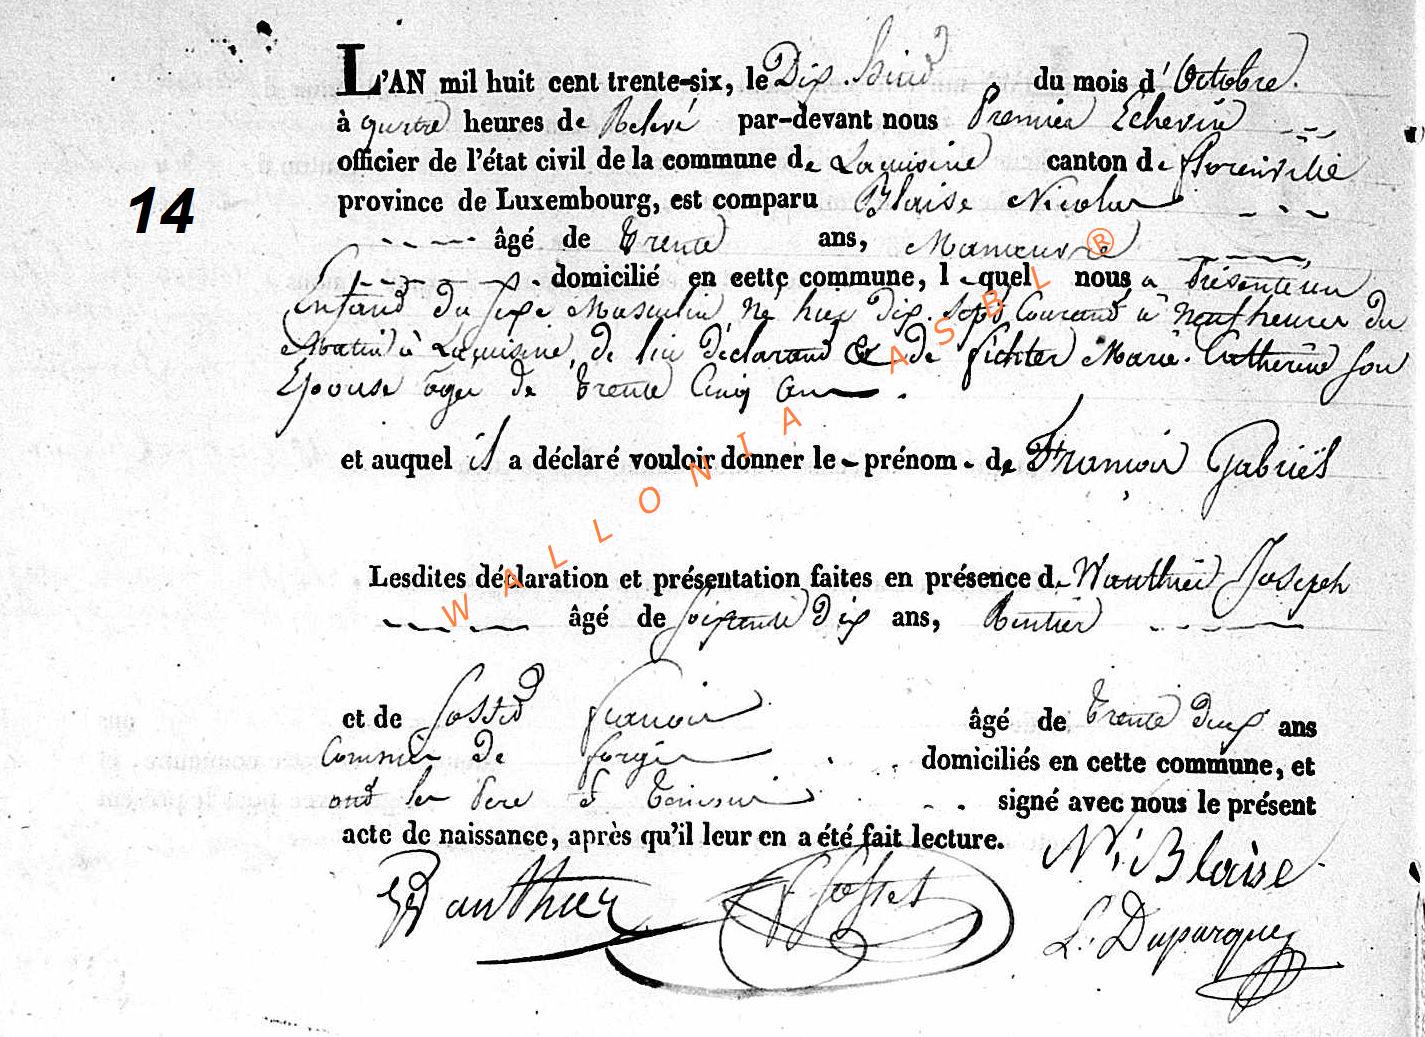 14
L'AN mil huit cent trente-six, le Dix huit du mois d' Octobre.
à quatre heures de Relevé par-devant nous Premier Echevin
officier de l'état civil de la commune de Lacuisine canton de florenville
province de Luxembourg, est comparu Blaise Nicolas
âgé de trente ans, Manœuvre
domicilié en cette commune, lequel nous a Présenté un
Enfant du sexe Masculin né hier dix-sept Courant à neuf heures du
Matin à Lacuisine, de lui déclarant & de fichter Marie Catherine son
Epouse agée de trente Cinq ans.
et auquel il a déclaré vouloir donner le prénom de François Gabriël
Lesdites déclaration et présentation faites en présence de Wauthier Joseph
âgé de soixante dix ans, Rentier
et de Jostet françois âgé de trente deux ans
Commis de forge domiciliés en cette commune, et
ont les Père & témoins signé avec nous le présent
acte de naissance, après qu'il leur en a été fait lecture.
N. Blaise
Wauthier
L. Duparque
WALLONIA ASBL ®